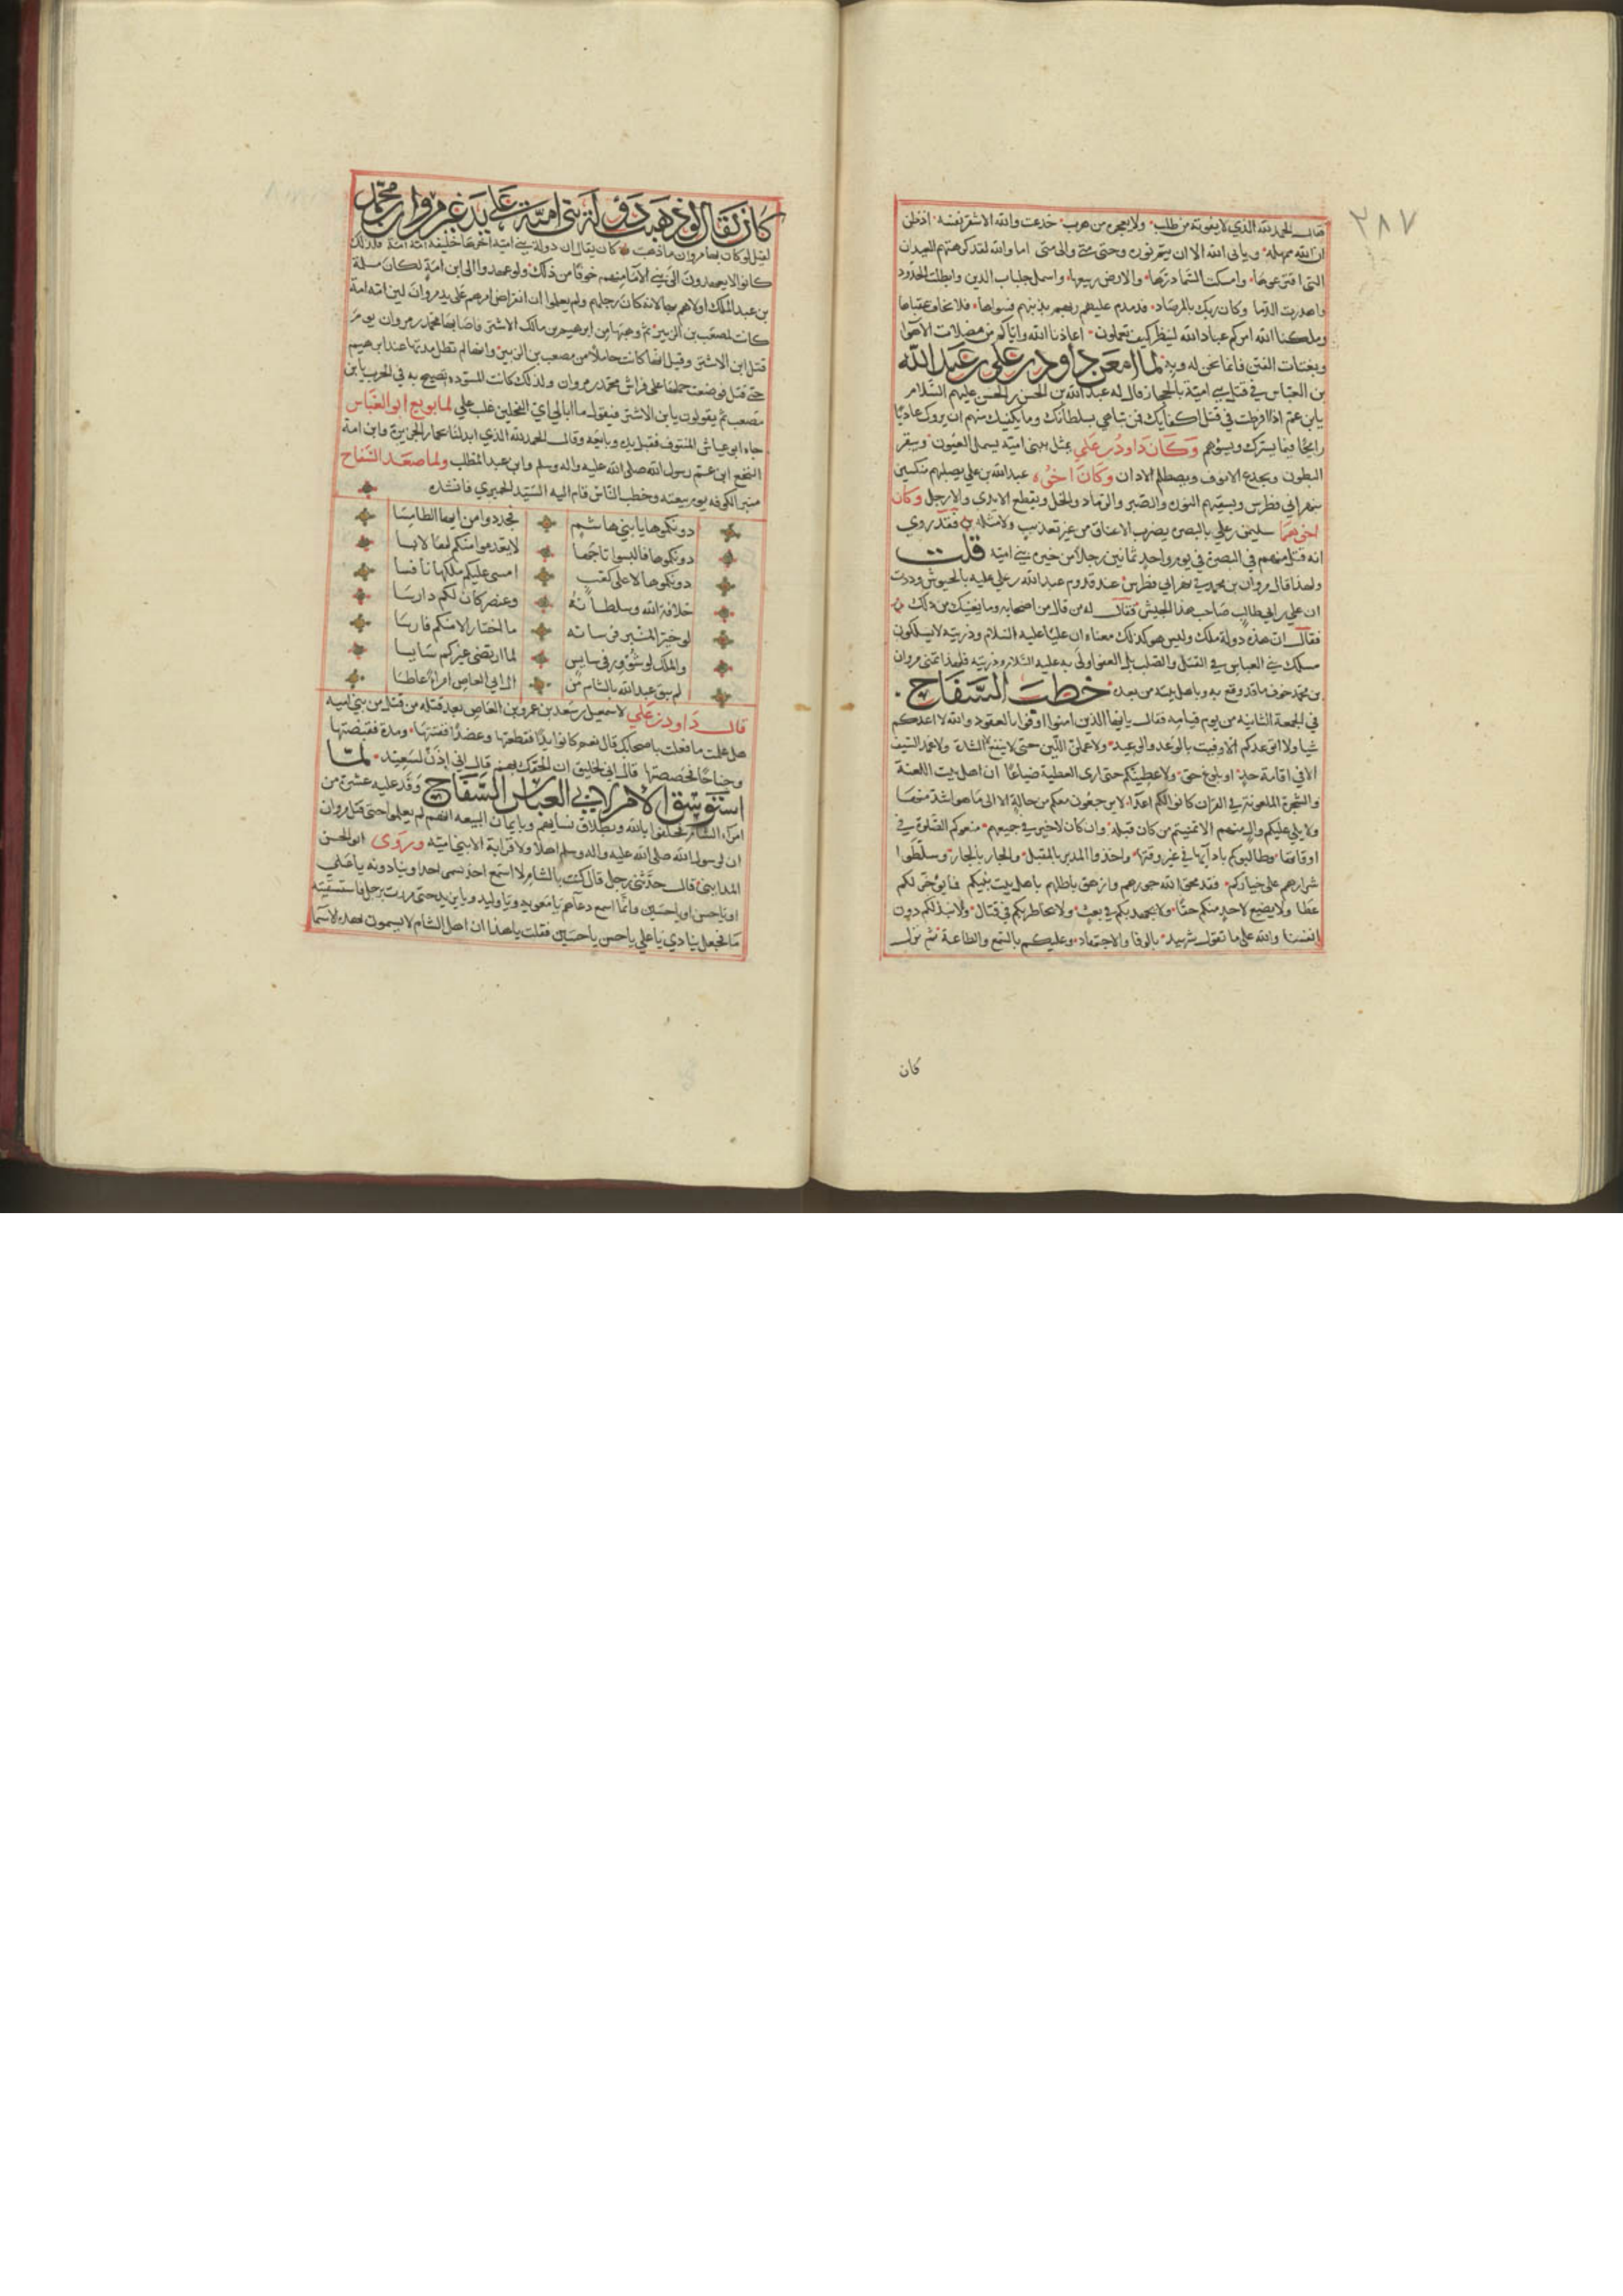 ٢٨٧
فقال الحمد لله الذي لا يفوته من طلب ولا يعجزه من هرب خدعت والله الاشقر نفسه اذ ظن
ان الله ممهله ويابى الله الا ان يتم نوره وحتى متى والى متى اما والله لقد كرهتهم العيدان
التي افترعوها وامسكت السما درها والارض ريعها واسمل جلباب الدين وابطلت الحدود
واهدرت الدما وكان ربك بالمرصاد فدمدم عليهم ربهم بذنبهم فسواها فلا يخاف عقباها
وملكنا الله امركم عباد الله لينظر كيف تعملون اعاذنا الله واياكم من مضلات الاهوا
وبغتات الفتن فانما نحن له وبه لما امعن داود بن علي بن عبد الله
بن العباس في قتل بني امية بالحجاز قال له عبد الله بن الحسن بن الحسن عليهم السلام
يابن عم اذا افرطت في قتل اكفايك فمن تباهي بسلطانك وما يكفيك منهم ان يروك غاديا
رايحا فيما يسرك ويسؤهم وكان داود بن علي يمثل ببني امية يسمل العيون ويبقر
البطون ويجدع الانوف ويصطلم الاذان وكان اخوه عبد الله بن علي يصلبهم منكسين
بنهر ابي فطرس ويسقيهم النورة والصبر والرماد والخل ويقطع الايدي والارجل وكان
اخوهما سليمن بن علي بالبصرة يضرب الاعناق من غير تعذيب ولا مثلة فقد روي
انه قتل منهم في البصرة في يوم واحد ثمانين رجلا من خيرة بني امية قلت
ولهذا قال مروان بن محمد في نهر ابي فطرس عند قدوم عبد الله بن علي عليه بالجيوش وددت
ان علي بن ابي طالب صاحب هذا الجيش فقال له من قال من اصحابه وما يغنيك من ذلك
فقال ان هذه دولة ملك وليس هو كذلك معناه ان عليا عليه السلام وذريته لا يسلكون
مسلك بني العباس في القتل والصلب بل العفو اولى به عليه السلام وذريته فلهذا تمنى مروان
بن محمد خوف ما قد وقع به وباهل بيته من بعده خطب السفاح
في الجمعة الثانية من يوم قيامه فقال يا ايها الذين امنوا اوفوا بالعقود والله لا اعدكم
شيا ولا اتوعدكم الا وفيت بالوعد والوعيد ولاعملن اللين حتى لا ينفع الا الشدة ولاغمد السيف
الا في اقامة حد او بلوغ حق ولاعطينكم حتى ارى العطية ضياعا ان اهل بيت اللعنة
والشجرة الملعونة في القران كانوا لكم اعداء لا يرجعون معكم من حالة الا الى ما هو اشد منها
ولا يلي عليكم وال منهم الا تمنيتم من كان قبله وان كان لا خير في جميعهم منعوكم الصلوة في
اوقاتها وطالبوكم بادآيها في غير وقتها واخذوا المدبر بالمقبل والجار بالجار وسلطوا
شرارهم على خياركم فقد محق الله جورهم وازهق باطلهم باهل بيت نبيكم فما يؤخر لكم
عطا ولا يضيع لاحد منكم حقا ولا يجهد بكم في بعث ولا نخاطر بكم في قتال ولا نبذلكم دون
انفسنا والله على ما نقول شهيد بالوفا والاجتهاد وعليكم بالسمع والطاعة ثم نزل
كان
كان يقال لو ذهبت دولة بني امية على يد غير مروان بن محمد
لقيل لو كان لها مروان ما ذهبت كان يقال ان دولة بني امية اخرها خليفة امه امة فلذلك
كانوا لا يعهدون الى بني الامآ منهم خوفا من ذلك ولو عهدوا الى ابن امة لكان مسلمة
بن عبد الملك اولاهم بها لانه كان رجلهم ولم يعلموا ان انقراض امرهم على يد مروان لين امه امة
كانت لمصعب بن الزبير ثم وهبها من ابرهيم بن مالك الاشتر فاصابها محمد بن مروان يوم
قتل ابن الاشتر وقيل انها كانت حاملا من مصعب بن الزبير وانها لم تطل مدتها عند ابرهيم
حتى قتل فوضعت حملها على فراش محمد بن مروان ولذلك كانت المسودة تصيح به في الحرب يا بن
مصعب ثم يقولون يا بن الاشتر فيقول ما ابالي اي الفحلين غلب علي لما بويع ابو العباس
جاه ابن عياش المنتوف فقبل يده وبايعه وقال الحمد لله الذي ابدلنا بحمار الجزيرة وابن امة
النخع ابن عم رسول الله صلى الله عليه واله وسلم وابن عبد المطلب ولما صعد السفاح
منبر الكوفة يوم بيعته وخطب الناس قام اليه السيد الحميري فانشده
دونكموها يا بني هاشم فجددوا من ايها الطامسا
دونكموها فالبسوا تاجها لا يعدموا منكم لها لابسا
دونكموها لا على كعب امسى عليكم ملكها نافسا
خلافة الله وسلطانه وعنصر كان لكم دارسا
لو خير المنبر فرسانه ما اختار الا منكم فارسا
والملك لو شوور في سايس لما ارتضى غيركم سايسا
لم يبق عبد الله بالشام من ال ابي العاص امرأ عاطسا
قال داود بن علي لاسمعيل بن سعد بن عمرو بن العاص بعد قتله من قتل من بني امية
هل علمت ما فعلت باصحابك قال نعم كانوا يدا فقطعتها وعضدا ففتتها ومرة فنقضتها
وجناحا فحصصتها قال اني لخليق ان الحقك بهم قال اني اذن لسعيد لما
استوسق الامر لابي العباس السفاح وفد عليه عشرة من
امراء الشام فحلفوا بالله وبطلاق نسايهم وبايمان البيعة انهم لم يعلموا حتى قتل مروان
ان لرسول الله صلى الله عليه واله وسلم اهلا ولا قرابة الا بني امية وروى ابو الحسن
المدايني قال حدثني رجل قال كنت بالشام لا اسمع احد يسمي احدا وينادونه يا علي
او يا حسن او يا حسين وانما اسمع دعاهم يا معوية ويا وليد ويا يزيد حتى مررت برجل فاستسقيته
مآ فجعل ينادي يا علي يا حسن يا حسين فقلت يا هذا ان اهل الشام لا يسمون بهذه الاسما